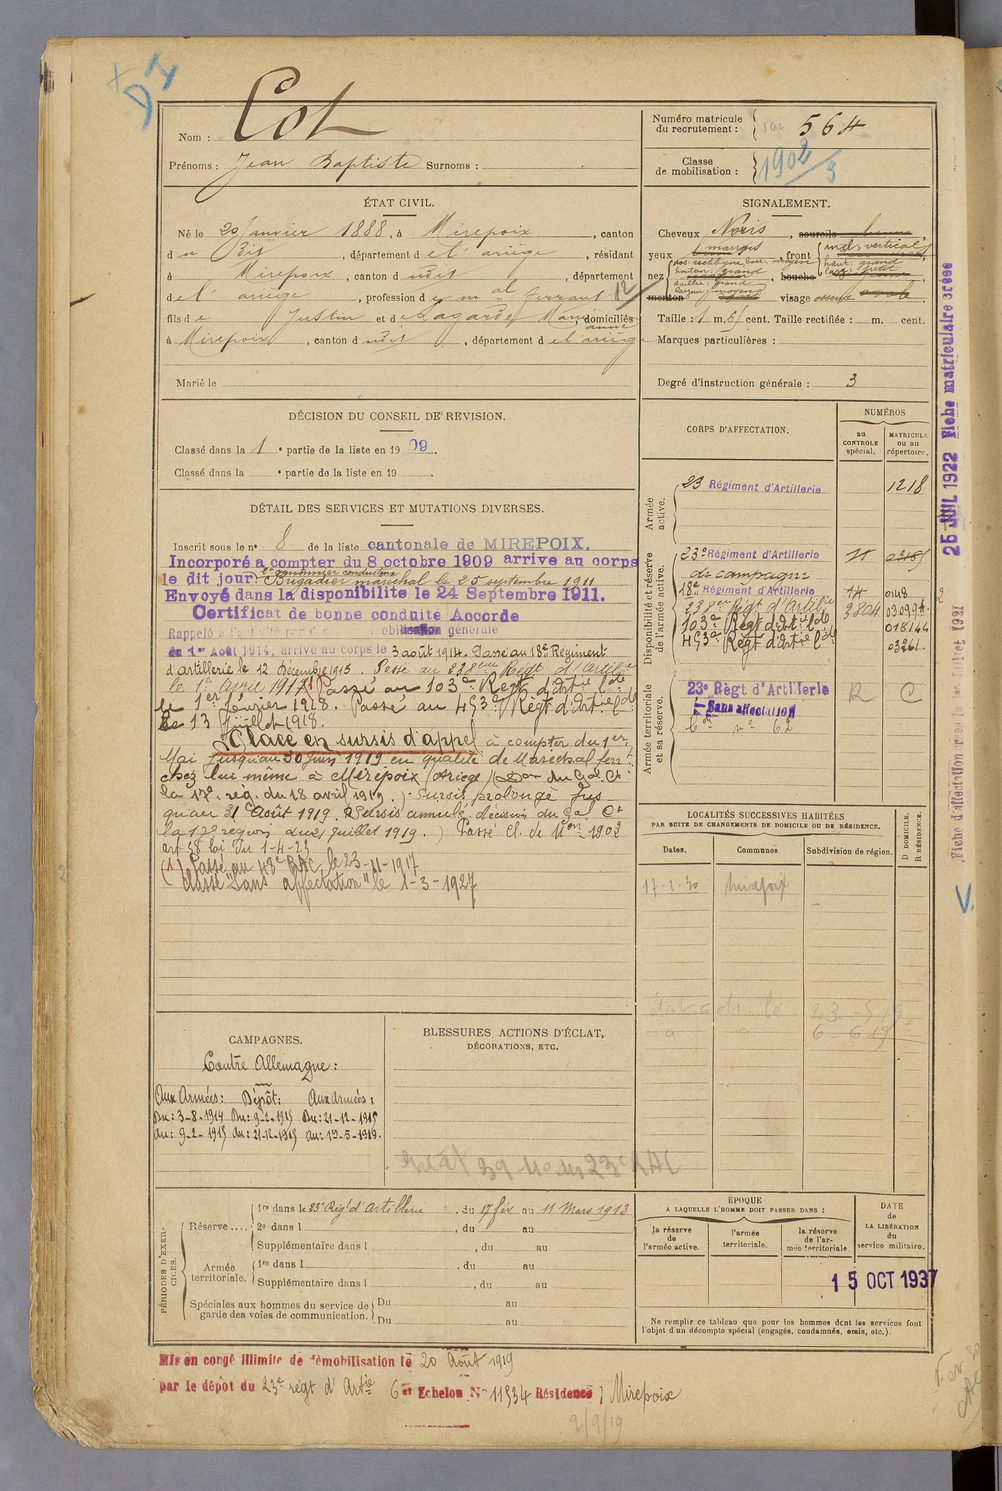 Nom : Cot
Prénoms : Jean Baptiste Surnoms :
Numéro matricule
du recrutement : 564
Classe
de mobilisation : 1902/3
ÉTAT CIVIL.
Né le 20 Janvier 1888, à Mirepoix, canton
d u Dit, département d e l'ariège, résidant
à Mirepoix, canton d udit, département
d e l'ariège, profession d e m al ferrant 12
fils d e Justin et d e Lagarde Marie anne domiciliés
à Mirepoix, canton d udit, département d e l'ariège
Marié le
SIGNALEMENT.
Cheveux Noirs, sourcils bruns
yeux marrons, front ind: vertical
haut: grand
nez dos: rectiligne base: moyen larg: petit
hauteur: grand, bouche
saillie: grand
largeur: moyen
menton visage osseux ovale
Taille : 1 m. 61 cent. Taille rectifiée : m. cent.
Marques particulières :
Degré d'instruction générale : 3
DÉCISION DU CONSEIL DE REVISION.
Classé dans la 1 e partie de la liste en 19 09.
Classé dans la e partie de la liste en 19
DÉTAIL DES SERVICES ET MUTATIONS DIVERSES.
Inscrit sous le n° 8 de la liste cantonale de MIREPOIX.
Incorporé a compter du 8 octobre 1909 arrive au corps
le dit jour. 2e canonnier conducteur
Brigadier maréchal le 25 septembre 1911
Envoyé dans la disponibilite le 24 Septembre 1911.
Certificat de bonne conduite Accorde
Rappelé à l'activité par d mobilisation générale
du 1er Août 1914, arrive au corps le 3 août 1914. Passé au 18e Régiment
d'artillerie le 12 Décembre 1915. Passé au 238eme Régt d'Artillie
le 1er Avril 1917 (1) Passé au 103e Régt d'Artie l de
le 1er février 1918. Passé au 453e Régt d'Artie l de
Le 13 Juillet 1918.
Placé en sursis d'appel à compter du 1er
Mai jusqu'au 30 Juin 1919 en qualité de Maréchal ferrt
chez lui même à Mirepoix (Ariège) (Don du Gal Ct
la 17e rég. du 18 avril 1919.) Sursis prolongé jus
qu'au 31 Août 1919. Sursis annulé décision du Gal Ct
la 17e région du 21 juillet 1919.) Passé Cl. de Mon 1902
art 58 loi du 1-4-23
(1) Passé au 48e RAC le 23-11-1917
Classé "Sans affectation" le 1-3-1927
CORPS D'AFFECTATION.
NUMÉROS
au
CONTROLE
spécial.
MATRICULE
ou au
répertoire.
Armée
active.
23 Régiment d'Artillerie 1218
Disponibilité et réserve
de l'armée active.
23e Régiment d'Artillerie
de campagne
18e Régiment d'Artillerie 0148
238me Régt d'Artillie 3804 03099A
103e Régt d'Artie l de 018144
453e Régt d'Artie l de 03261
Armée territoriale
et sa réserve.
23e Règt d'Artillerie R C
Sans affectation
n° 62
LOCALITÉS SUCCESSIVES HABITÉES
PAR SUITE DE CHANGEMENTS DE DOMICILE OU DE RÉSIDENCE.
D DOMICILE.
R RÉSIDENCE.
Dates. Communes. Subdivision de région.
17-1-30 Mirepoix
23-5-19
6-6-19
CAMPAGNES.
Contre Allemagne :
Aux Armées : Dépôt : Aux armées :
Du : 3-8-1914 Du : 9-2-1915 Du : 21-12-1915
au : 9-2-1915 au : 21-12-1915 au : 19-5-1919.
BLESSURES, ACTIONS D'ÉCLAT,
DÉCORATIONS, ETC.
23e RAC
PÉRIODES D'EXER-
CICES.
Réserve.... 1re dans le 23e Régt d'Artillerie, du 17 fév au 11 Mars 1913
2e dans l , du au
Supplémentaire dans l , du au
Armée
territoriale. 1re dans l , du au
Supplémentaire dans l , du au
Spéciales aux hommes du service de
garde des voies de communication. Du au
Du au
ÉPOQUE
A LAQUELLE L'HOMME DOIT PASSER DANS :
la réserve
de
l'armée active.
l'armée
territoriale.
la réserve
de l'ar-
mée territoriale.
DATE
de
LA LIBÉRATION
du
service militaire.
15 OCT 1937
Ne remplir ce tableau que pour les hommes dont les services font
l'objet d'un décompte spécial (engagés, condamnés, omis, etc.).
Mis en congé illimite de démobilisation le 20 Août 1919
par le dépôt du 23e régt d'Artie 6 et Echelon N° 11534 Résidence } Mirepoix
2/9/19
25 JUIL 1922 Fiche matriculaire créée
V.